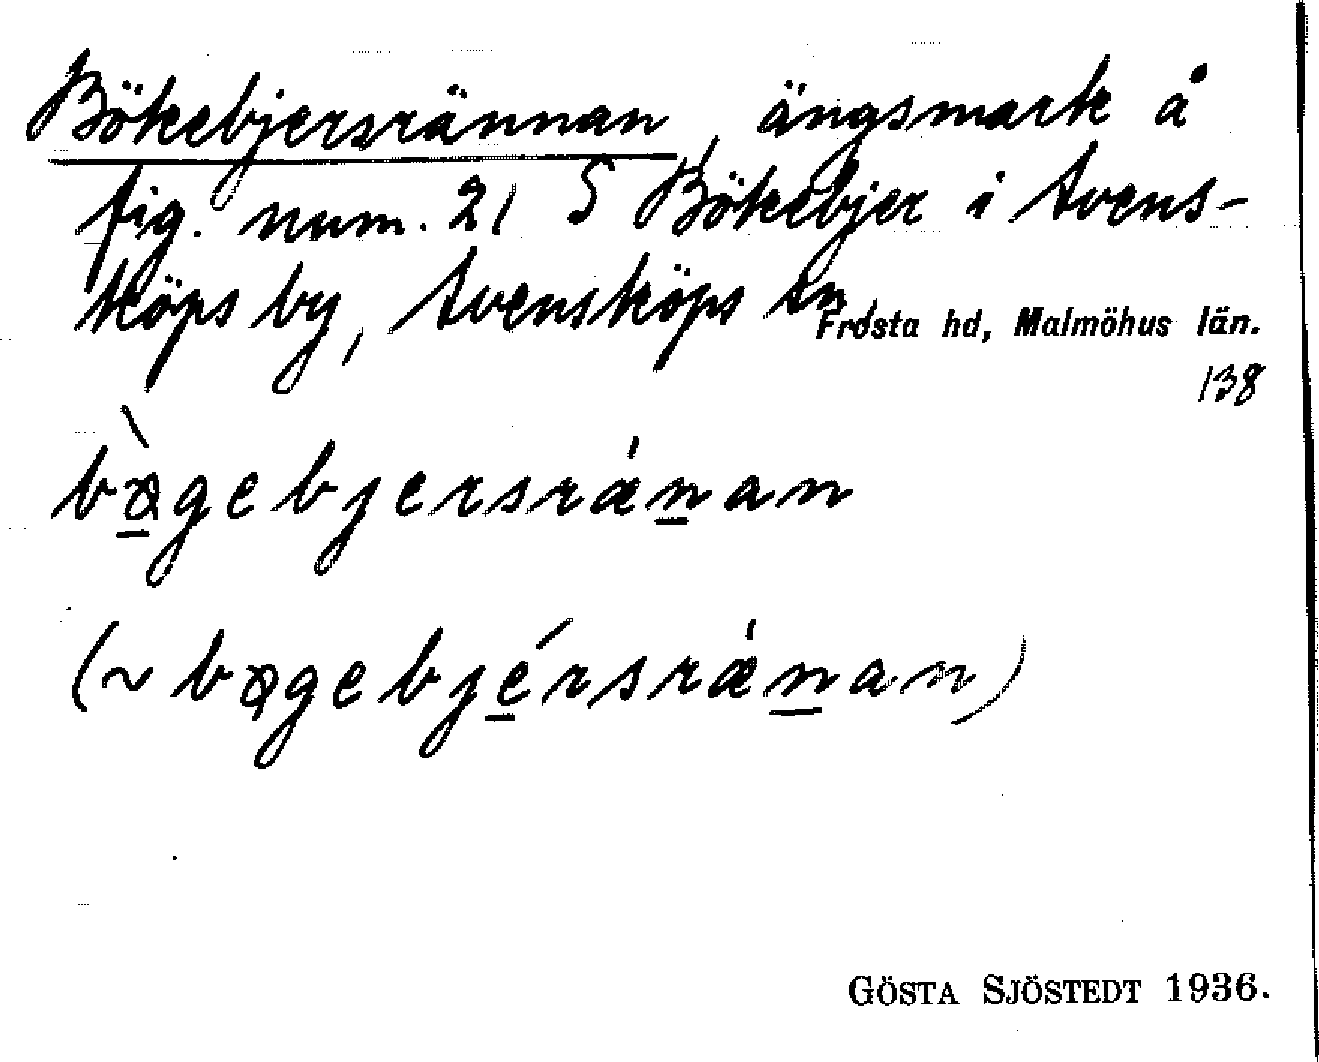 Bökebjersrännan, ängsmark å
fig. num. 21 S Bökebjer i Svens-
köps by, Svensköps sn,
Frosta hd, Malmöhus län.
138
bø̀gebjersrǽnan
(~ bøgebjérsrǽnan)
GÖSTA SJÖSTEDT 1936.